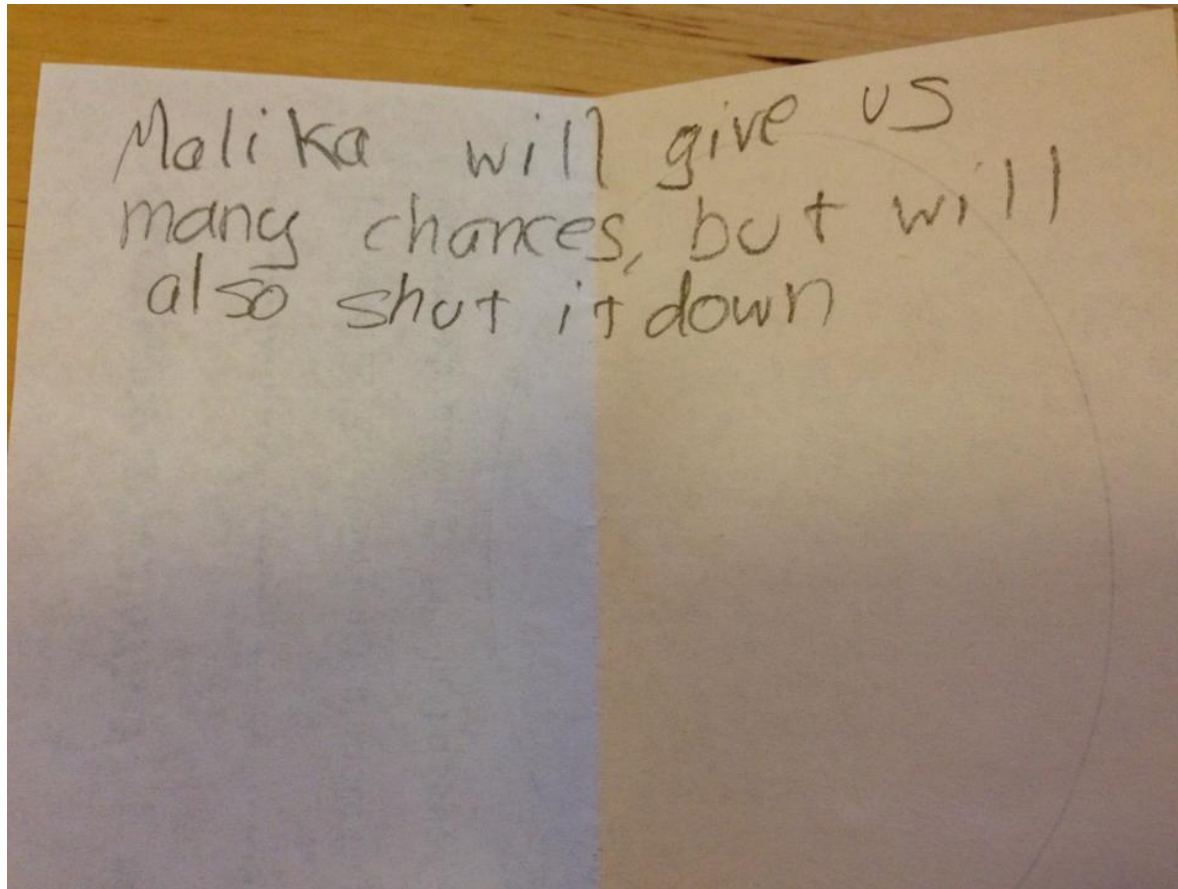 Malika will give us
many chances, but will
also shut it down